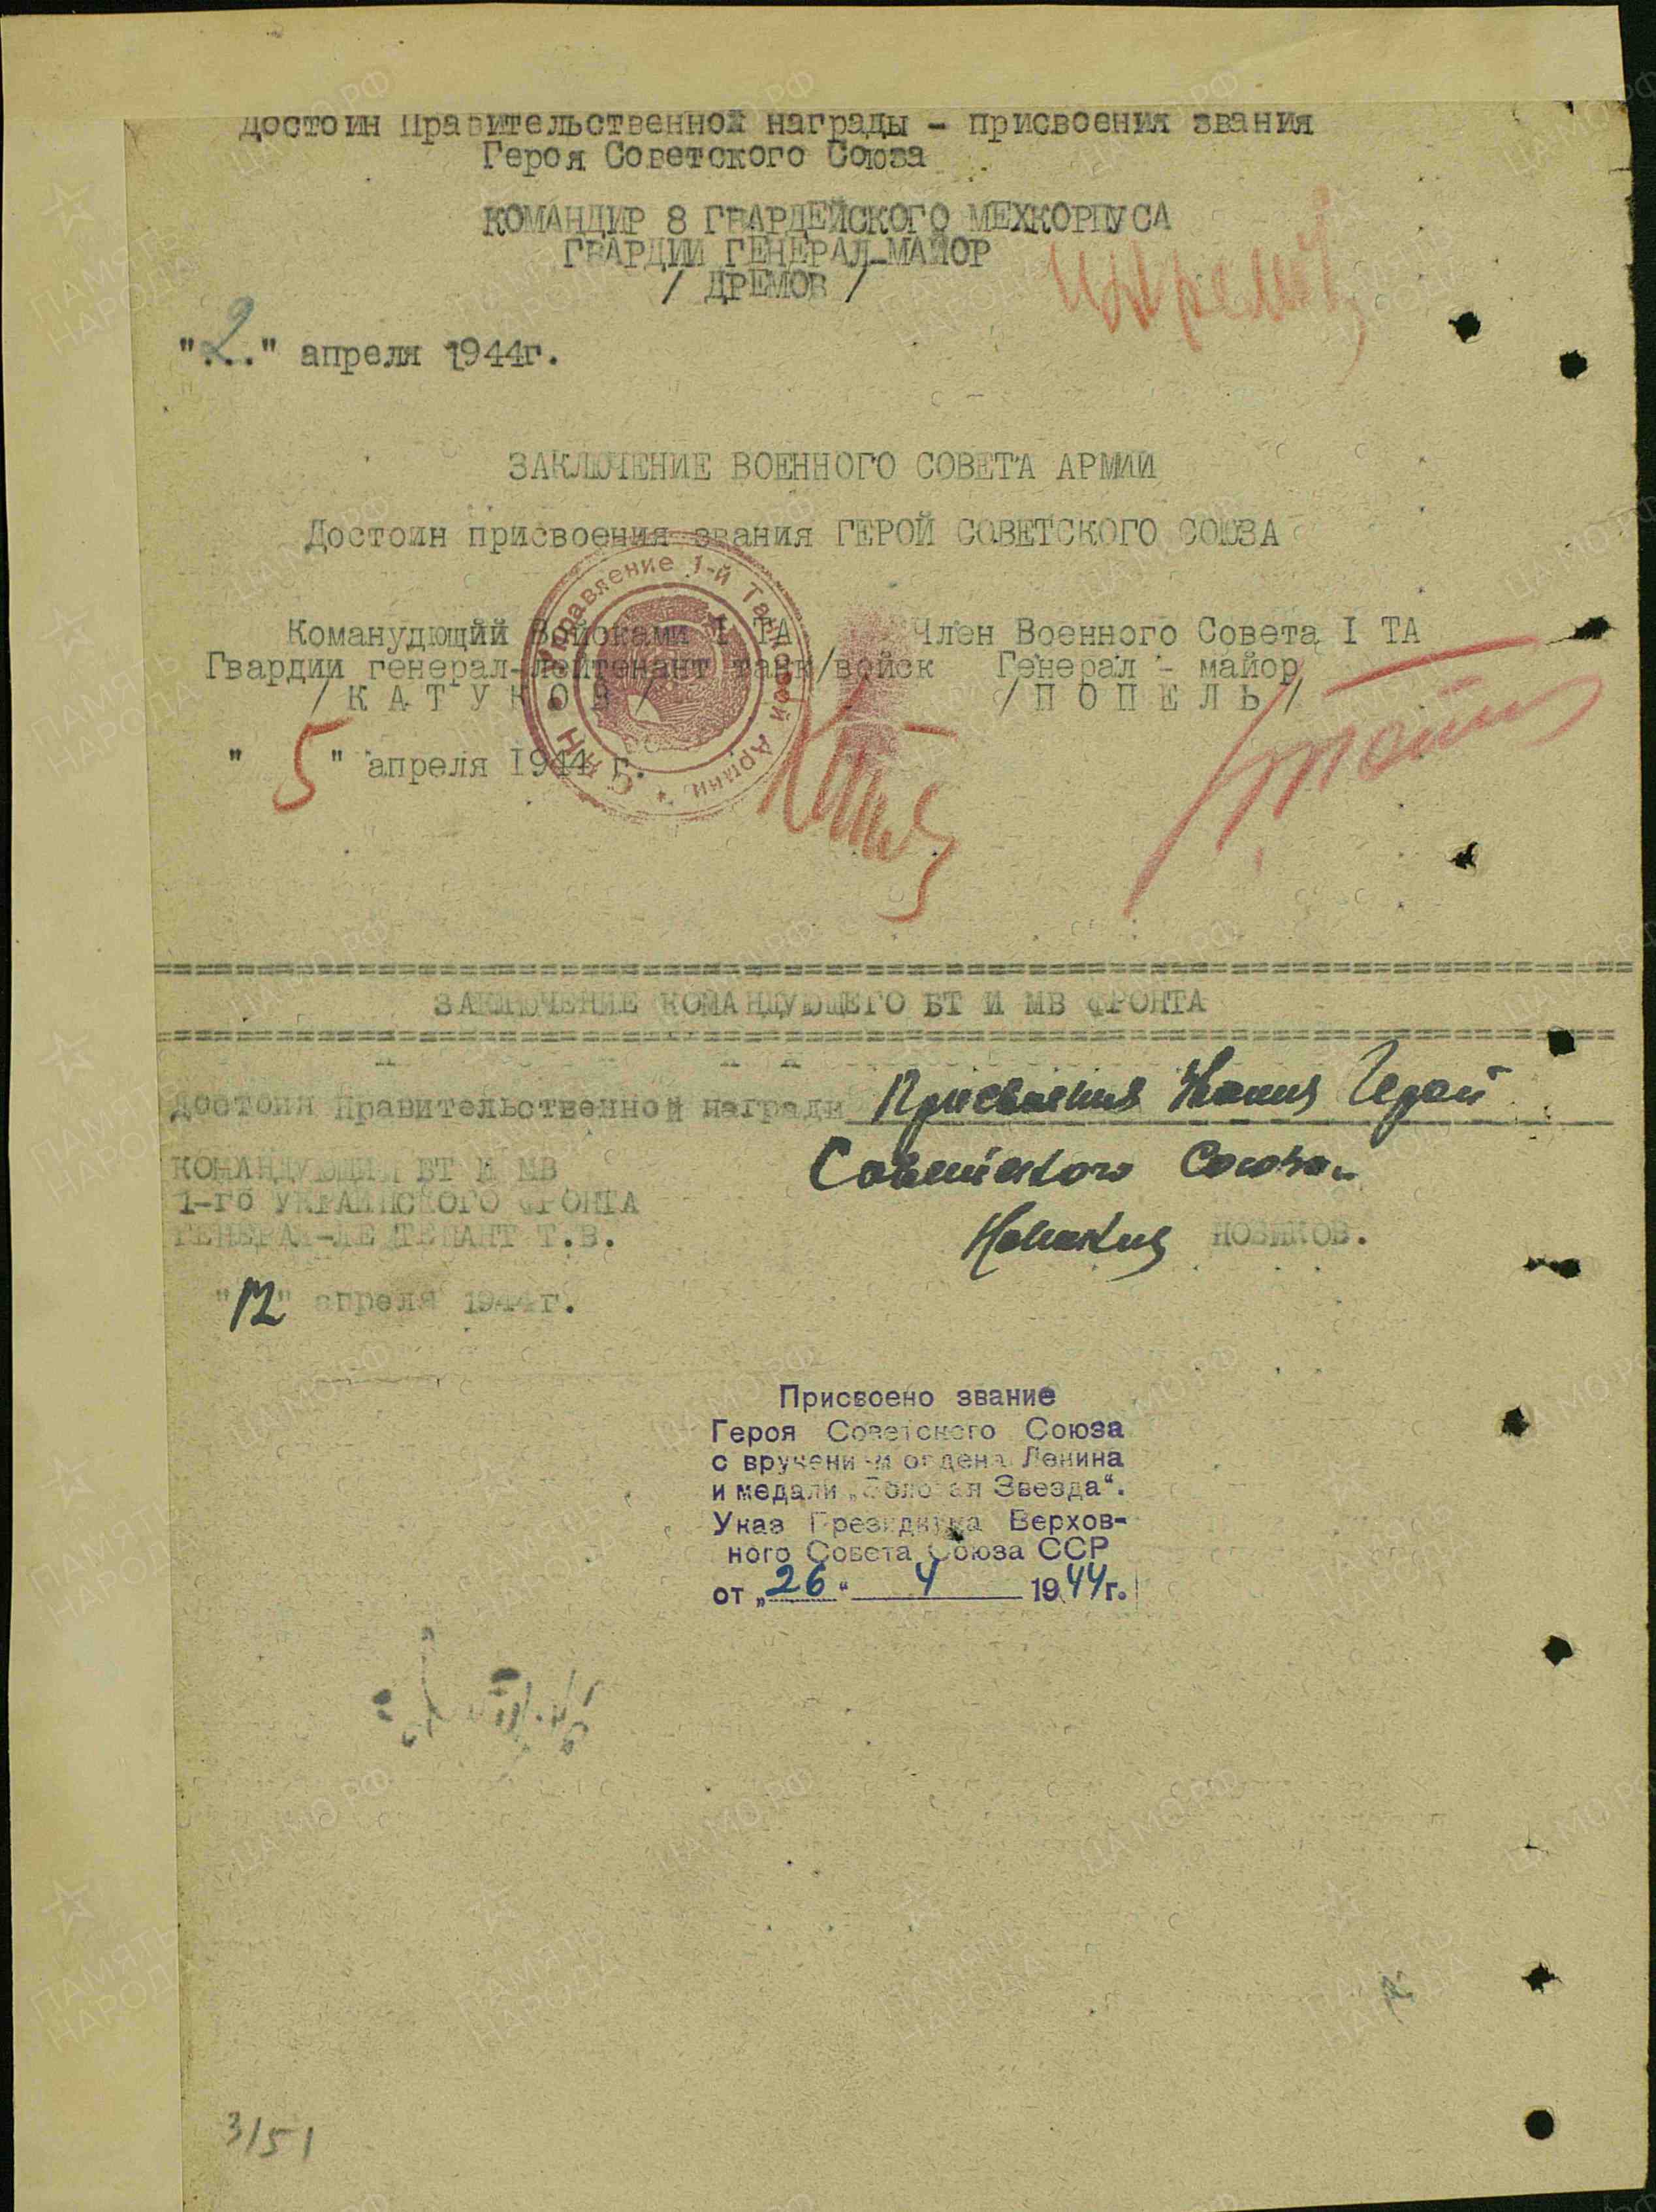 достоин Правительственной награды - присвоения звания
Героя Советского Союза
КОМАНДИР 8 ГВАРДЕЙСКОГО МЕХКОРПУСА
ГВАРДИИ ГЕНЕРАЛ-МАЙОР
/ ДРЕМОВ /
"2." апреля 1944г.
ЗАКЛЮЧЕНИЕ ВОЕННОГО СОВЕТА АРМИИ
Достоин присвоения звания ГЕРОЙ СОВЕТСКОГО СОЮЗА
Управление 1-й Танковой Армии * НКО
Команудющий Войсками I ТА Член Военного Совета I ТА
Гвардии генерал-лейтенант танк/войск Генерал - майор
/ К А Т У К О В / / П О П Е Л Ь /
" 5 " апреля 1944 г.
ЗАКЛЮЧЕНИЕ КОМАНДУЮЩЕГО БТ И МВ ФРОНТА
Достоин Правительственной награды присвоения звания Герой
Советского Союза.
КОМАНДУЮЩИЙ БТ И МВ
1-го УКРАИНСКОГО ФРОНТА
ГЕНЕРАЛ-ЛЕЙТЕНАНТ Т.В. Новиков НОВИКОВ.
"12" апреля 1944г.
Присвоено звание
Героя Советского Союза
с вручением ордена Ленина
и медали „Золотая Звезда“.
Указ Президиума Верхов-
ного Совета Союза ССР
от „26“ 4 1944г.
3/51
ПАМЯТЬ НАРОДА
ЦА МО РФ